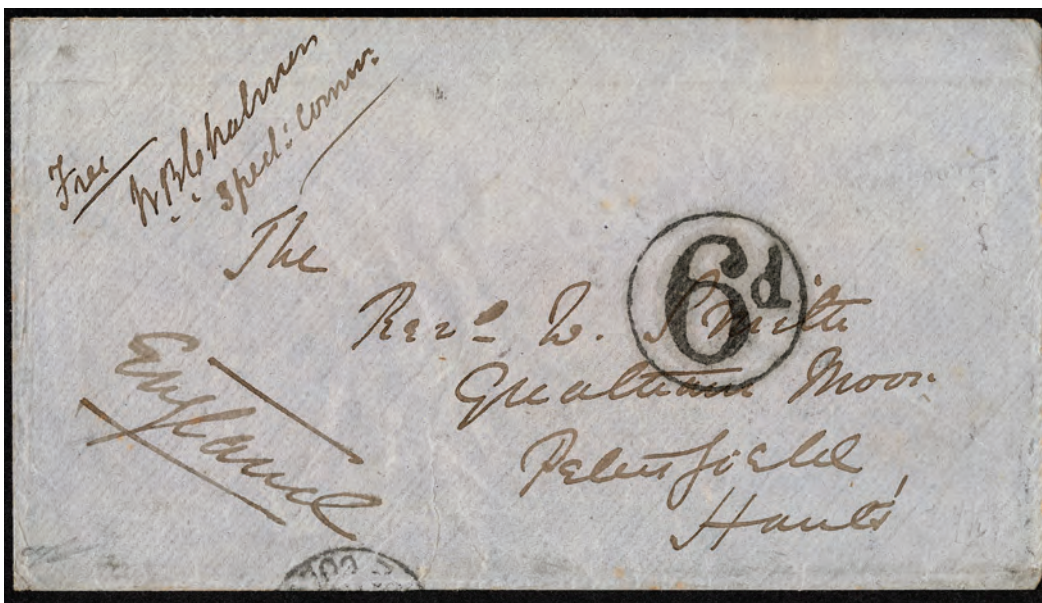 Free
W B Chalmers
Specl: Commr.
The
Revd W. Smith
6d
Greatham Moor
Petersfield
Hants
England